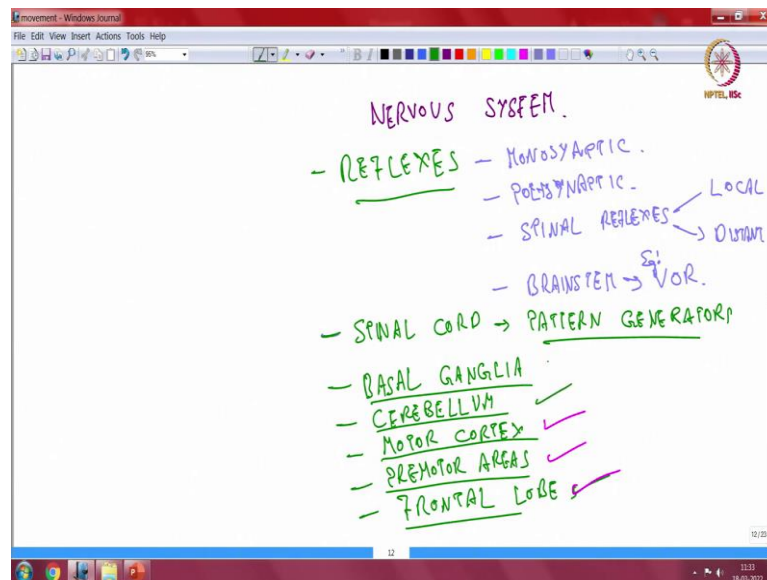 movement - Windows Journal
File Edit View Insert Actions Tools Help
95%
NPTEL, IISc
NERVOUS SYSTEM.
- REFLEXES - MONOSYAPTIC.
- POLYSYNAPTIC.
- SPINAL REFLEXES LOCAL
DISTANT
- BRAINSTEM → Eg: VOR.
- SPINAL CORD → PATTERN GENERATORS
- BASAL GANGLIA
- CEREBELLUM
- MOTOR CORTEX
- PREMOTOR AREAS
- FRONTAL LOBE
12/23
12
11:33
18-03-2022